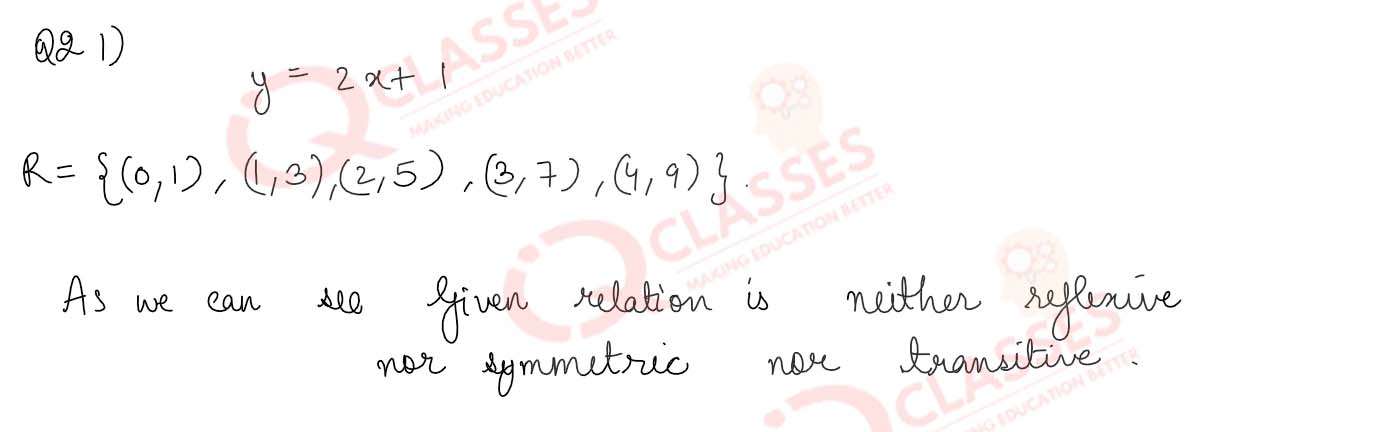 Q2 1)
y = 2x+1
R= {(0,1), (1,3),(2,5), (3,7), (4,9)}.
As we can see Given relation is neither reflexive
nor symmetric nor transitive.
CLASSES
MAKING EDUCATION BETTER
CLASSES
MAKING EDUCATION BETTER
CLASSES
MAKING EDUCATION BETTER